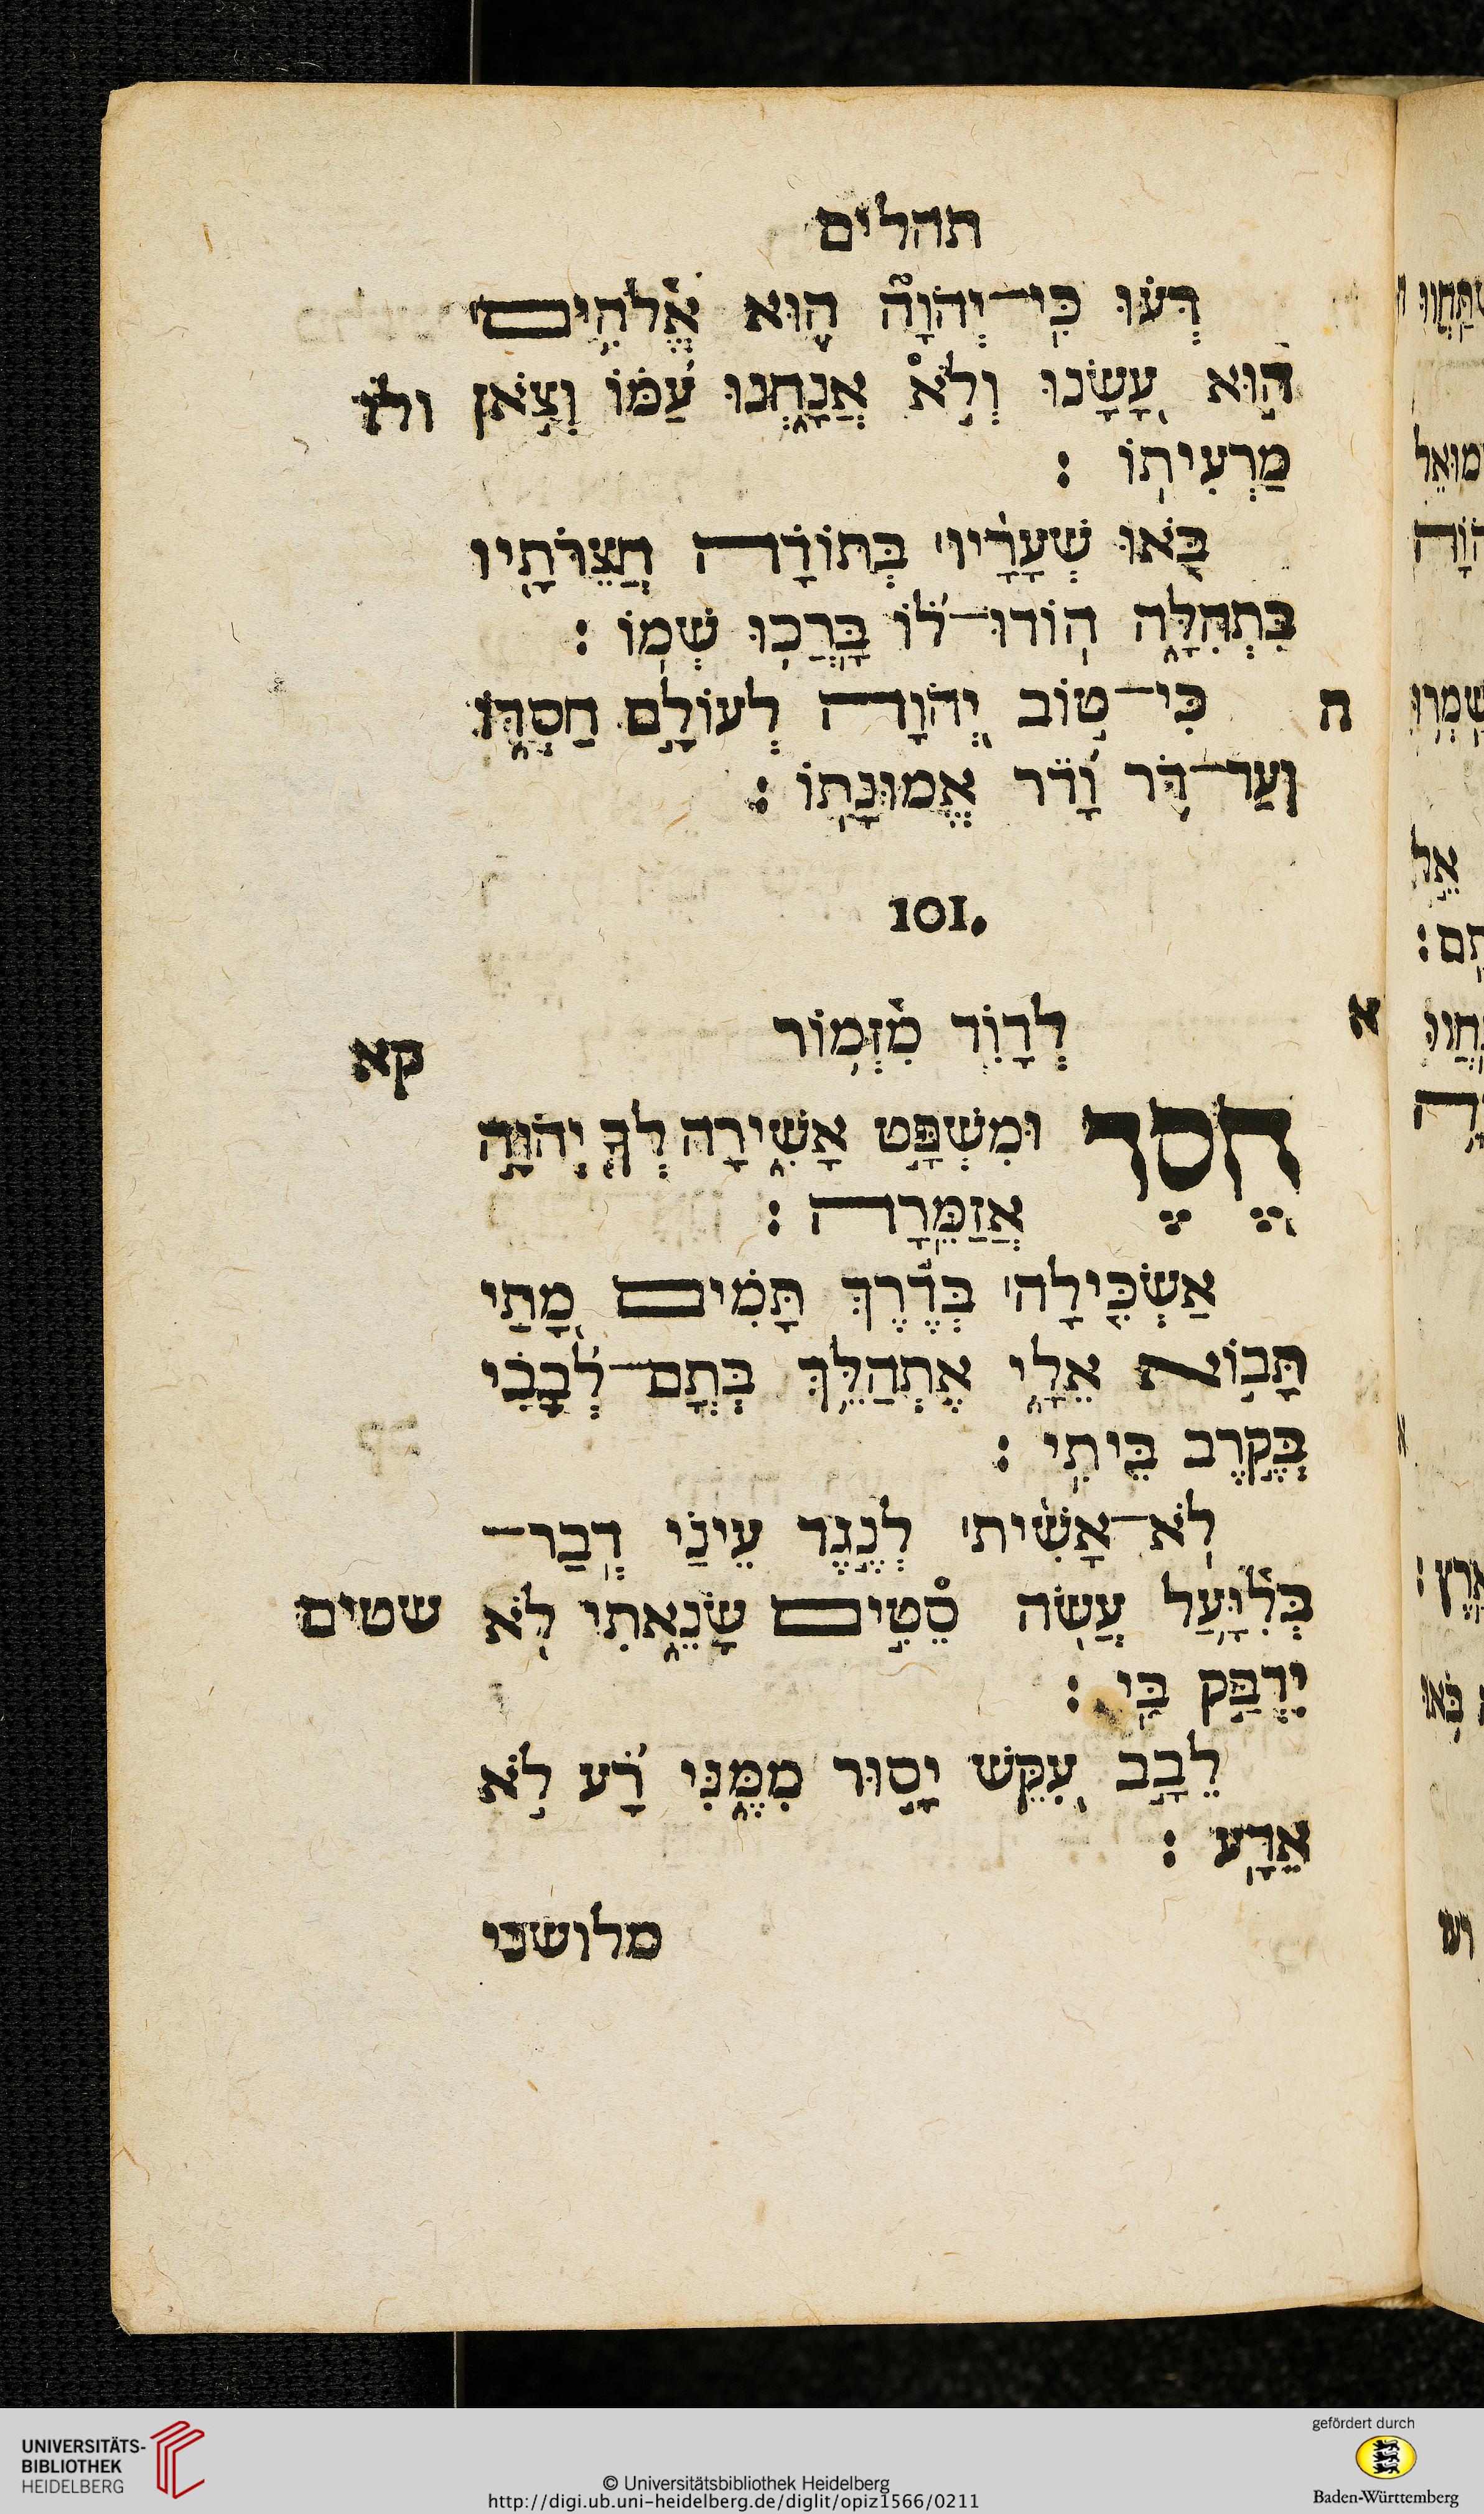 תהלים
דְּעוּ כִּי־יְהֹוָה הוּא אֱלֹהִים
הוּא עָשָׂנוּ וְלֹא אֲנַחְנוּ עַמּוֹ וְצֹאן ולו
מַרְעִיתוֹ :
בֹּאוּ שְׁעָרָיו בְּתוֹדָה חֲצֵרֹתָיו
בִּתְהִלָּה הוֹדוּ־לוֹ בָּרֲכוּ שְׁמוֹ :
ה כִּי־טוֹב יְהֹוָה לְעוֹלָם חַסְדּוֹ
וְעַד־דֹּר וָדֹר אֱמוּנָתוֹ :
101.
א לְדָוִד מִזְמוֹר
קא
חֶסֶד וּמִשְׁפָּט אָשִׁירָה לְךָ יְהֹוָה
אֲזַמֵּרָה :
אַשְׂכִּילָה בְּדֶרֶךְ תָּמִים מָתַי
תָּבוֹא אֵלָי אֶתְהַלֵּךְ בְּתָם־לְבָבִי
בְּקֶרֶב בֵּיתִי :
לֹא־אָשִׁית לְנֶגֶד עֵינַי דְּבַר־
בְּלִיָּעַל עֲשֹׂה סֵטִים שָׂנֵאתִי לֹא שטים
יִדְבַּק בִּי :
לֵבָב עִקֵּשׁ יָסוּר מִמֶּנִּי רָע לֹא
אֵדָע :
מלושני
UNIVERSITÄTS-
BIBLIOTHEK
HEIDELBERG
© Universitätsbibliothek Heidelberg
http://digi.ub.uni-heidelberg.de/diglit/opiz1566/0211
gefördert durch
Baden-Württemberg